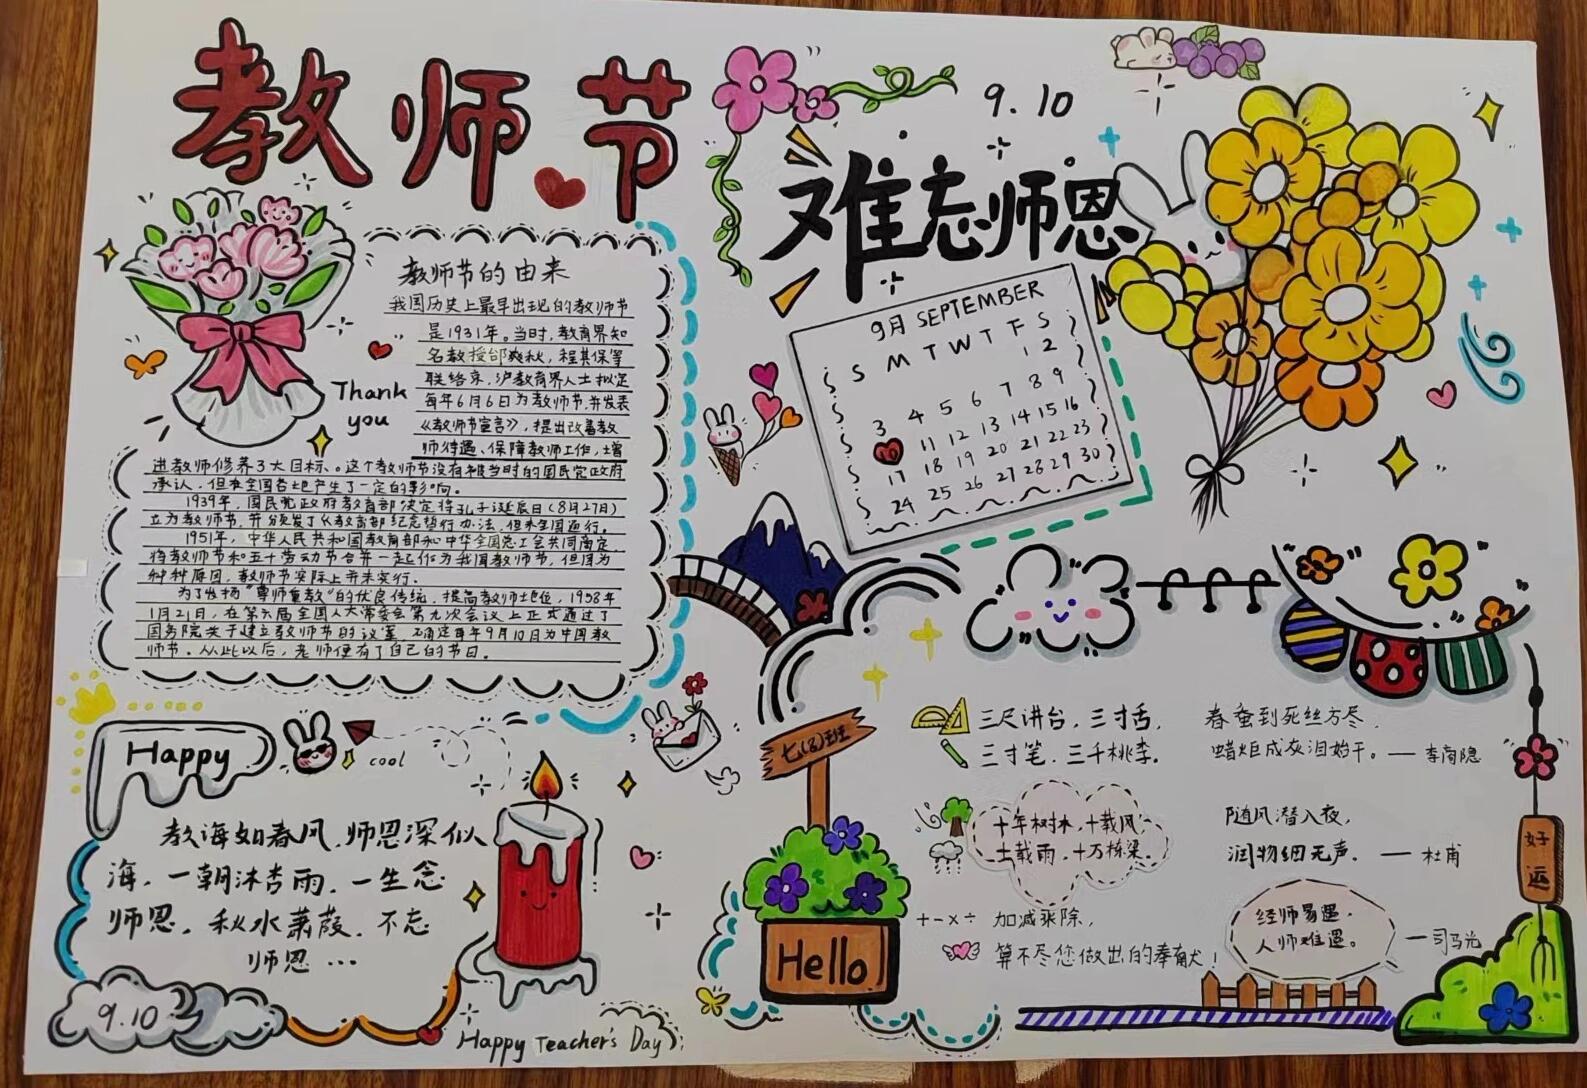 教师节
9.10
难忘师恩
教师节的由来
我国历史上最早出现的教师节
是1931年。当时,教育界知
名教授邰爽秋,程其保等
联络京,沪教育界人士拟定
每年6月6日为教师节,并发表
《教师节宣言》,提出改善教
师待遇、保障教师工作,增
进教师修养3大目标、。这个教师节没有被当时的国民党政府
承认,但在全国各地产生了一定的影响。
1939年,国民党政府教育部决定将孔子诞辰日(8月27日)
立为教师节,并颁发了《教育部纪念暂行办法,但未全国通行。
1951年,中华人民共和国教育部和中华全国总工会共同商定,
将教师节和五十劳动节合并一起作为我国教师节,但因为
种种原因,教师节实际上并未实行。
为了发扬“尊师重教”的优良传统,提高教师地位,1958年
1月21日,在第六届全国人大常委会第九次会议上正式通过了
国务院关于建立教师节的议案,确定每年9月10日为中国教
师节。从此以后,老师便有了自己的节日。
Thank
you
9月 SEPTEMBER
S M T W T F S
1 2
3 4 5 6 7 8 9
10 11 12 13 14 15 16
17 18 19 20 21 22 23
24 25 26 27 28 29 30
Happy
cool
教诲如春风,师恩深似
海,一朝沐杏雨,一生念
师恩。秋水蒹葭,不忘
师恩…
9.10
Happy Teacher's Day
七(8)班
Hello
三尺讲台,三寸舌,
三寸笔,三千桃李。
春蚕到死丝方尽,
蜡炬成灰泪始干。—李商隐
十年树木,十载风,
十载雨,十万栋梁
随风潜入夜,
润物细无声。—杜甫
+-×÷ 加减乘除,
算不尽您做出的奉献!
经师易遇,
人师难遇。
—司马光
好
运